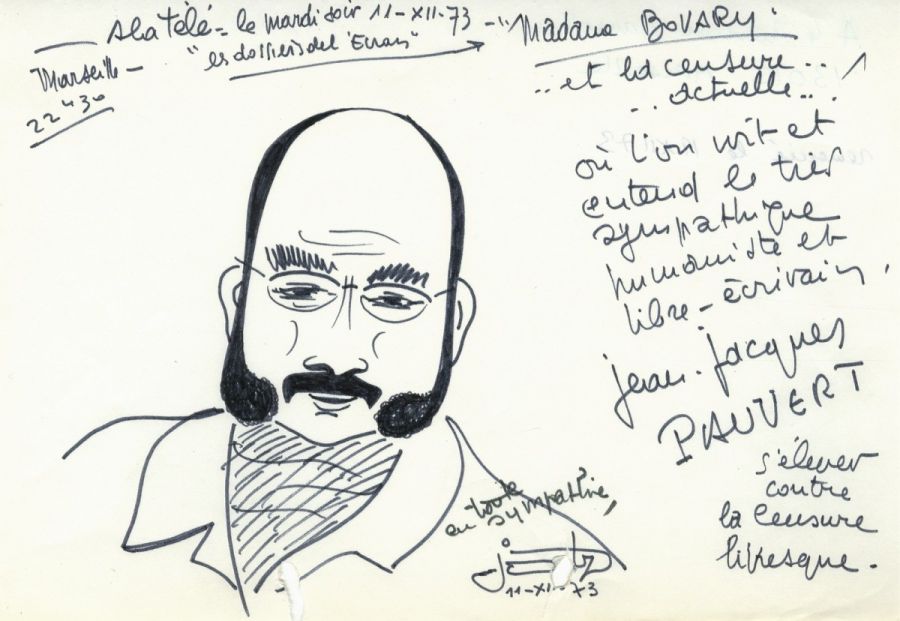 A la télé - le mardi soir 11-XII-73 - "Madame BOVARY"
"les dossiers de l'Ecran"
Marseille -
22 H 30
.. et la censure ..
.. actuelle ..
où l'on voit et
entend le très
sympathique
humaniste et
libre-écrivain,
jean-jacques
PAUVERT
s'élever
contre
la censure
livresque.
en toute
sympathie,
11-XII-73